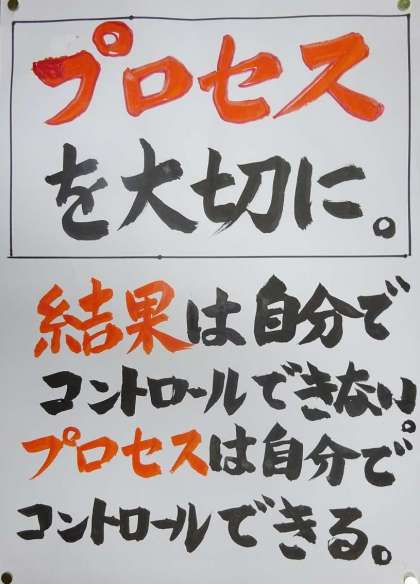 プロセス
を大切に。
結果は自分で
コントロールできない。
プロセスは自分で
コントロールできる。